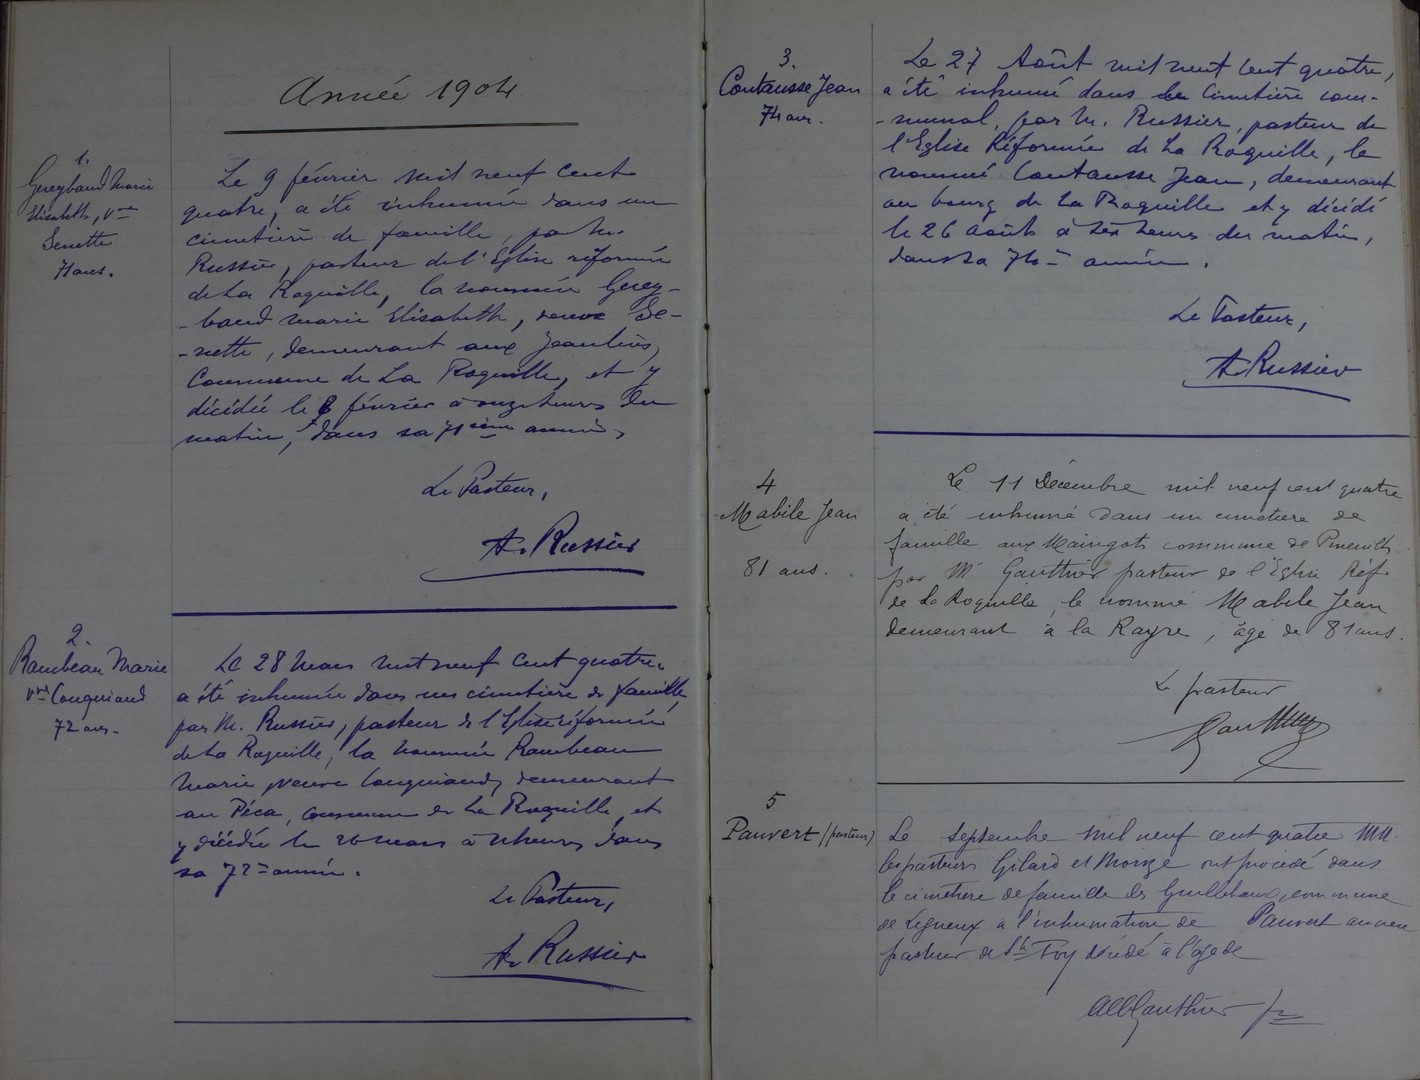 Année 1904
1.
Gueybaud Marie
Elisabeth, Vve
Senette
71 ans.
Le 9 février mil neuf cent
quatre, a été inhumée dans un
cimetière de famille, par M.
Russier, pasteur de l'Eglise réformée
de La Roquille, la nommée Guey-
-baud Marie Elisabeth, veuve Se-
-nette, demeurant aux
Commune de La Roquille, et y
décédée le 8 février à onze heures du
matin, dans sa 71ième année,
Le Pasteur,
A. Russier
2.
Rambeau Marie
Vve Couquiaud
72 ans.
Le 28 Mars mil neuf cent quatre,
a été inhumée dans un cimetière de famille,
par M. Russier, pasteur de l'Eglise réformée
de La Roquille, la nommée Rambeau
Marie, veuve Couquiaud, demeurant
au Péca, commune de La Roquille, et
y décédée le 26 mars à heures dans
sa 72me année.
Le Pasteur,
A. Russier
3.
Contausse Jean
74 ans.
Le 27 Août mil neuf cent quatre,
a été inhumé dans le Cimetière com-
-munal, par M. Russier, pasteur de
l'Eglise Réformée de La Roquille, le
nommé Contausse Jean, demeurant
au bourg de La Roquille et y décédé
le 26 août à six heures du matin,
dans sa 74me année.
Le Pasteur,
A. Russier
4
Mabile Jean
81 ans.
Le 11 Décembre mil neuf cent quatre
a été inhumé dans un cimetière de
famille aux Maingots commune de Pineuilh
par Mr Gauthier pasteur de l'Eglise Réf.
de La Roquille, le nommé Mabile Jean
demeurant à la Rayre, âgé de 81 ans.
Le pasteur
Gauthier
5
Pauvert (pasteur)
Le Septembre mil neuf cent quatre MM.
les pasteurs Gilard et ont procédé dans
le cimetière de famille des commune
de Ligueux à l'inhumation de Pauvert ancien
pasteur de Ste Foy décédé à l'âge de
Gauthier